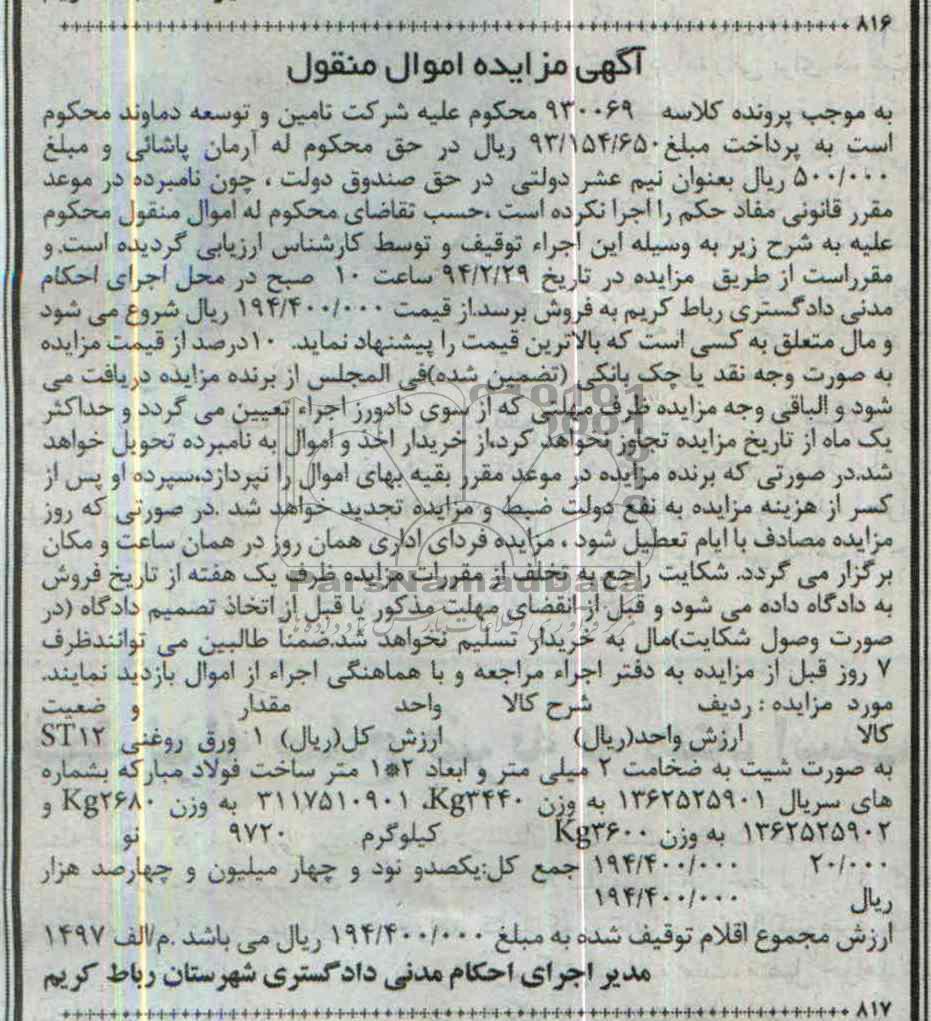 ۸۱۶
آگهی مزایده اموال منقول
به موجب پرونده کلاسه ۹۳۰۰۶۹ محکوم علیه شرکت تامین و توسعه دماوند محکوم
است به پرداخت مبلغ ۹۳/۱۵۴/۶۵۰ ریال در حق محکوم له آرمان پاشائی و مبلغ
۵۰۰/۰۰۰ ریال بعنوان نیم عشر دولتی در حق صندوق دولت ، چون نامبرده در موعد
مقرر قانونی مفاد حکم را اجرا نکرده است ،حسب تقاضای محکوم له اموال منقول محکوم
علیه به شرح زیر به وسیله این اجراء توقیف و توسط کارشناس ارزیابی گردیده است.و
مقرراست از طریق مزایده در تاریخ ۹۴/۲/۲۹ ساعت ۱۰ صبح در محل اجرای احکام
مدنی دادگستری رباط کریم به فروش برسد.از قیمت ۱۹۴/۴۰۰/۰۰۰ ریال شروع می شود
و مال متعلق به کسی است که بالاترین قیمت را پیشنهاد نماید. ۱۰درصد از قیمت مزایده
به صورت وجه نقد یا چک بانکی (تضمین شده)فی المجلس از برنده مزایده دریافت می
شود و الباقی وجه مزایده ظرف مهلتی که از سوی دادورز اجراء تعیین می گردد و حداکثر
یک ماه از تاریخ مزایده تجاوز نخواهد کرد،از خریدار اخذ و اموال به نامبرده تحویل خواهد
شد.در صورتی که برنده مزایده در موعد مقرر بقیه بهای اموال را نپردازد،سپرده او پس از
کسر از هزینه مزایده به نفع دولت ضبط و مزایده تجدید خواهد شد .در صورتی که روز
مزایده مصادف با ایام تعطیل شود ، مزایده فردای اداری همان روز در همان ساعت و مکان
برگزار می گردد. شکایت راجع به تخلف از مقررات مزایده ظرف یک هفته از تاریخ فروش
ParsNamadData
به دادگاه داده می شود و قبل از انقضای مهلت مذکور یا قبل از اتخاذ تصمیم دادگاه (در
صورت وصول شکایت)مال به خریدار تسلیم نخواهد شد.ضمنا طالبین می توانندظرف
۷ روز قبل از مزایده به دفتر اجراء مراجعه و با هماهنگی اجراء از اموال بازدید نمایند.
مورد مزایده : ردیف شرح کالا واحد مقدار و ضعیت
کالا ارزش واحد(ریال) ارزش کل(ریال) ۱ ورق روغنی ST۱۲
به صورت شیت به ضخامت ۲ میلی متر و ابعاد ۲*۱ متر ساخت فولاد مبارکه بشماره
های سریال ۱۳۶۲۵۲۵۹۰۱ به وزن Kg۳۴۴۰، ۳۱۱۷۵۱۰۹۰۱ به وزن Kg۲۶۸۰ و
۱۳۶۲۵۲۵۹۰۲ به وزن Kg۳۶۰۰ کیلوگرم ۹۷۲۰ نو
۲۰/۰۰۰ ۱۹۴/۴۰۰/۰۰۰ جمع کل:یکصدو نود و چهار میلیون و چهارصد هزار
ریال ۱۹۴/۴۰۰/۰۰۰
ارزش مجموع اقلام توقیف شده به مبلغ ۱۹۴/۴۰۰/۰۰۰ ریال می باشد .م/الف ۱۴۹۷
مدیر اجرای احکام مدنی دادگستری شهرستان رباط کریم
۸۱۷